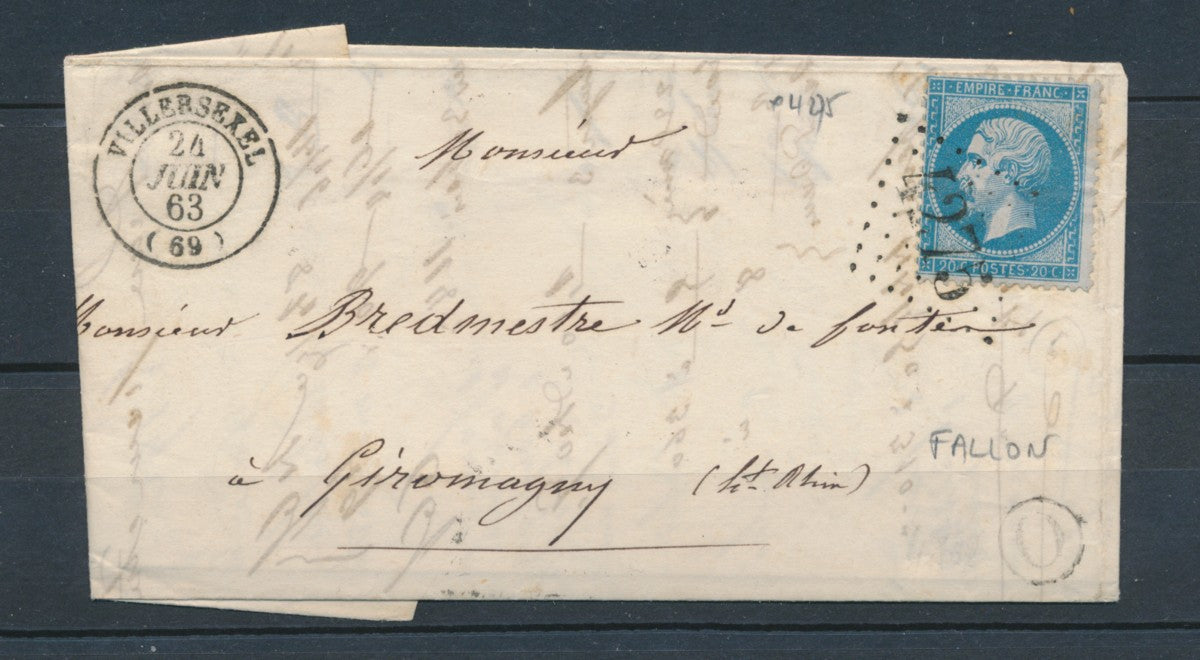 VILLERSEXEL
24
JUIN
63
(69)
Monsieur
EMPIRE · FRANC.
20 C POSTES 20 C
Monsieur Bredmestre Md de fonte
à Giromagny (ht Rhin)
FALLON
O